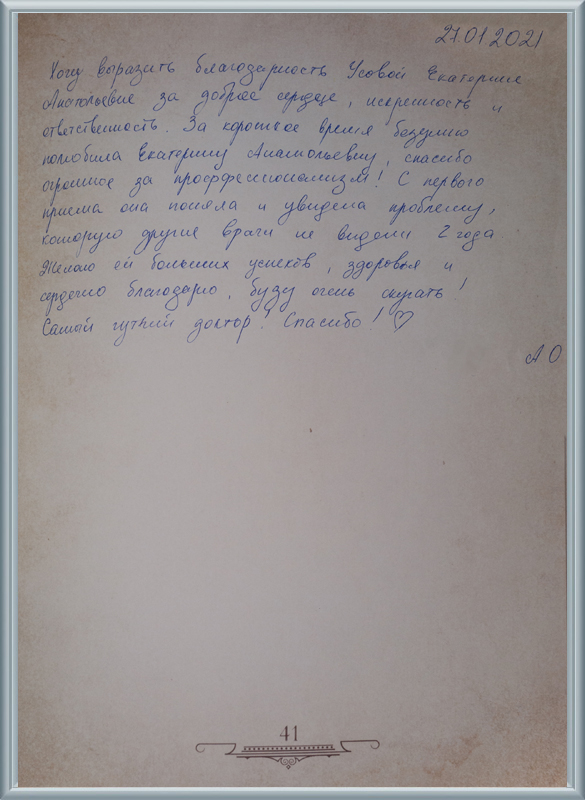 27.01.2021
Хочу выразить благодарность Усовой Екатерине
Анатольевне за доброе сердце, искренность и
ответственность. За короткое время безумно
полюбила Екатерину Анатольевну, спасибо
огромное за проффессионализм! С первого
приема она поняла и увидела проблему,
которую другие врачи не видели 2 года
Желаю ей больших успехов, здоровья и
сердечно благодарю, буду очень скучать!
Самый чуткий доктор! Спасибо! ♡
А О
41